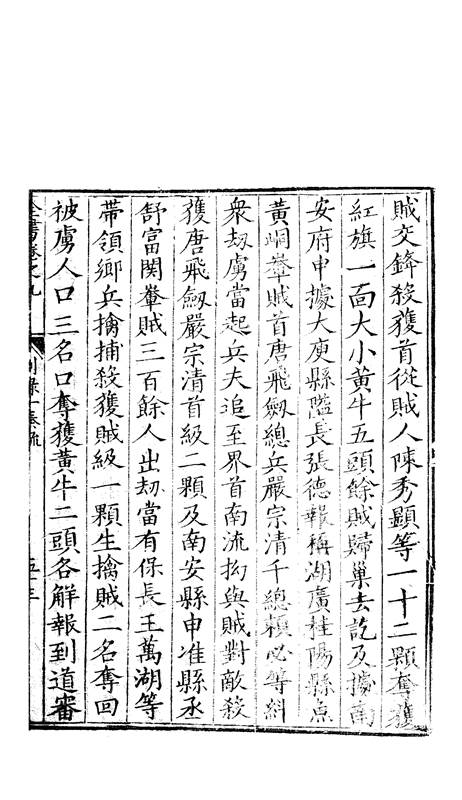 賊交鋒殺獲首從賊人陳秀顯等一十二顆奪獲
紅旗一面大小黃牛五頭餘賊歸巢去訖及據南
安府申據大庾縣隘長張德報稱湖廣桂陽縣点
黃峒輋賊首唐飛劔總兵嚴宗清千總賴必等糾
衆刼虜當起兵夫追至界首南流拗與賊對敵殺
獲唐飛劔嚴宗清首級二顆及南安縣申准縣丞
舒富関輋賊三百餘人出刼當有保長王萬湖等
帶領鄉兵擒捕殺獲賊級一顆生擒賊二名奪回
被虜人口三名口奪獲黃牛二頭各解報到道審
全書卷之九 別錄一奏疏